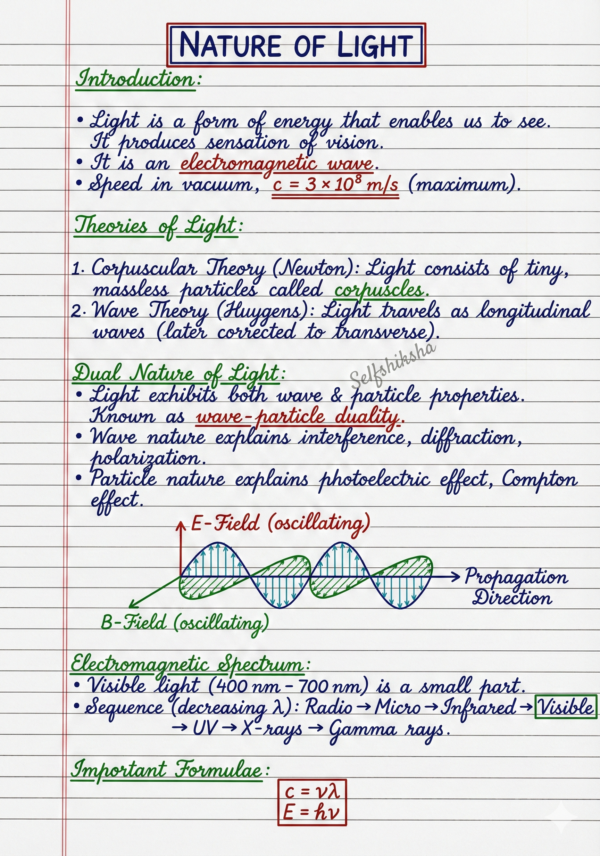 NATURE OF LIGHT
Introduction:
• Light is a form of energy that enables us to see.
It produces sensation of vision.
• It is an electromagnetic wave.
• Speed in vacuum, c = 3 × 10⁸ m/s (maximum).
Theories of Light:
1. Corpuscular Theory (Newton): Light consists of tiny,
massless particles called corpuscles.
2. Wave Theory (Huygens): Light travels as longitudinal
waves (later corrected to transverse).
Selfshiksha
Dual Nature of Light:
• Light exhibits both wave & particle properties.
Known as wave-particle duality.
• Wave nature explains interference, diffraction,
polarization.
• Particle nature explains photoelectric effect, Compton
effect.
E-Field (oscillating)
Propagation
Direction
B-Field (oscillating)
Electromagnetic Spectrum:
• Visible light (400 nm – 700 nm) is a small part.
• Sequence (decreasing λ): Radio → Micro → Infrared → Visible
→ UV → X-rays → Gamma rays.
Important Formulae:
c = νλ
E = hν